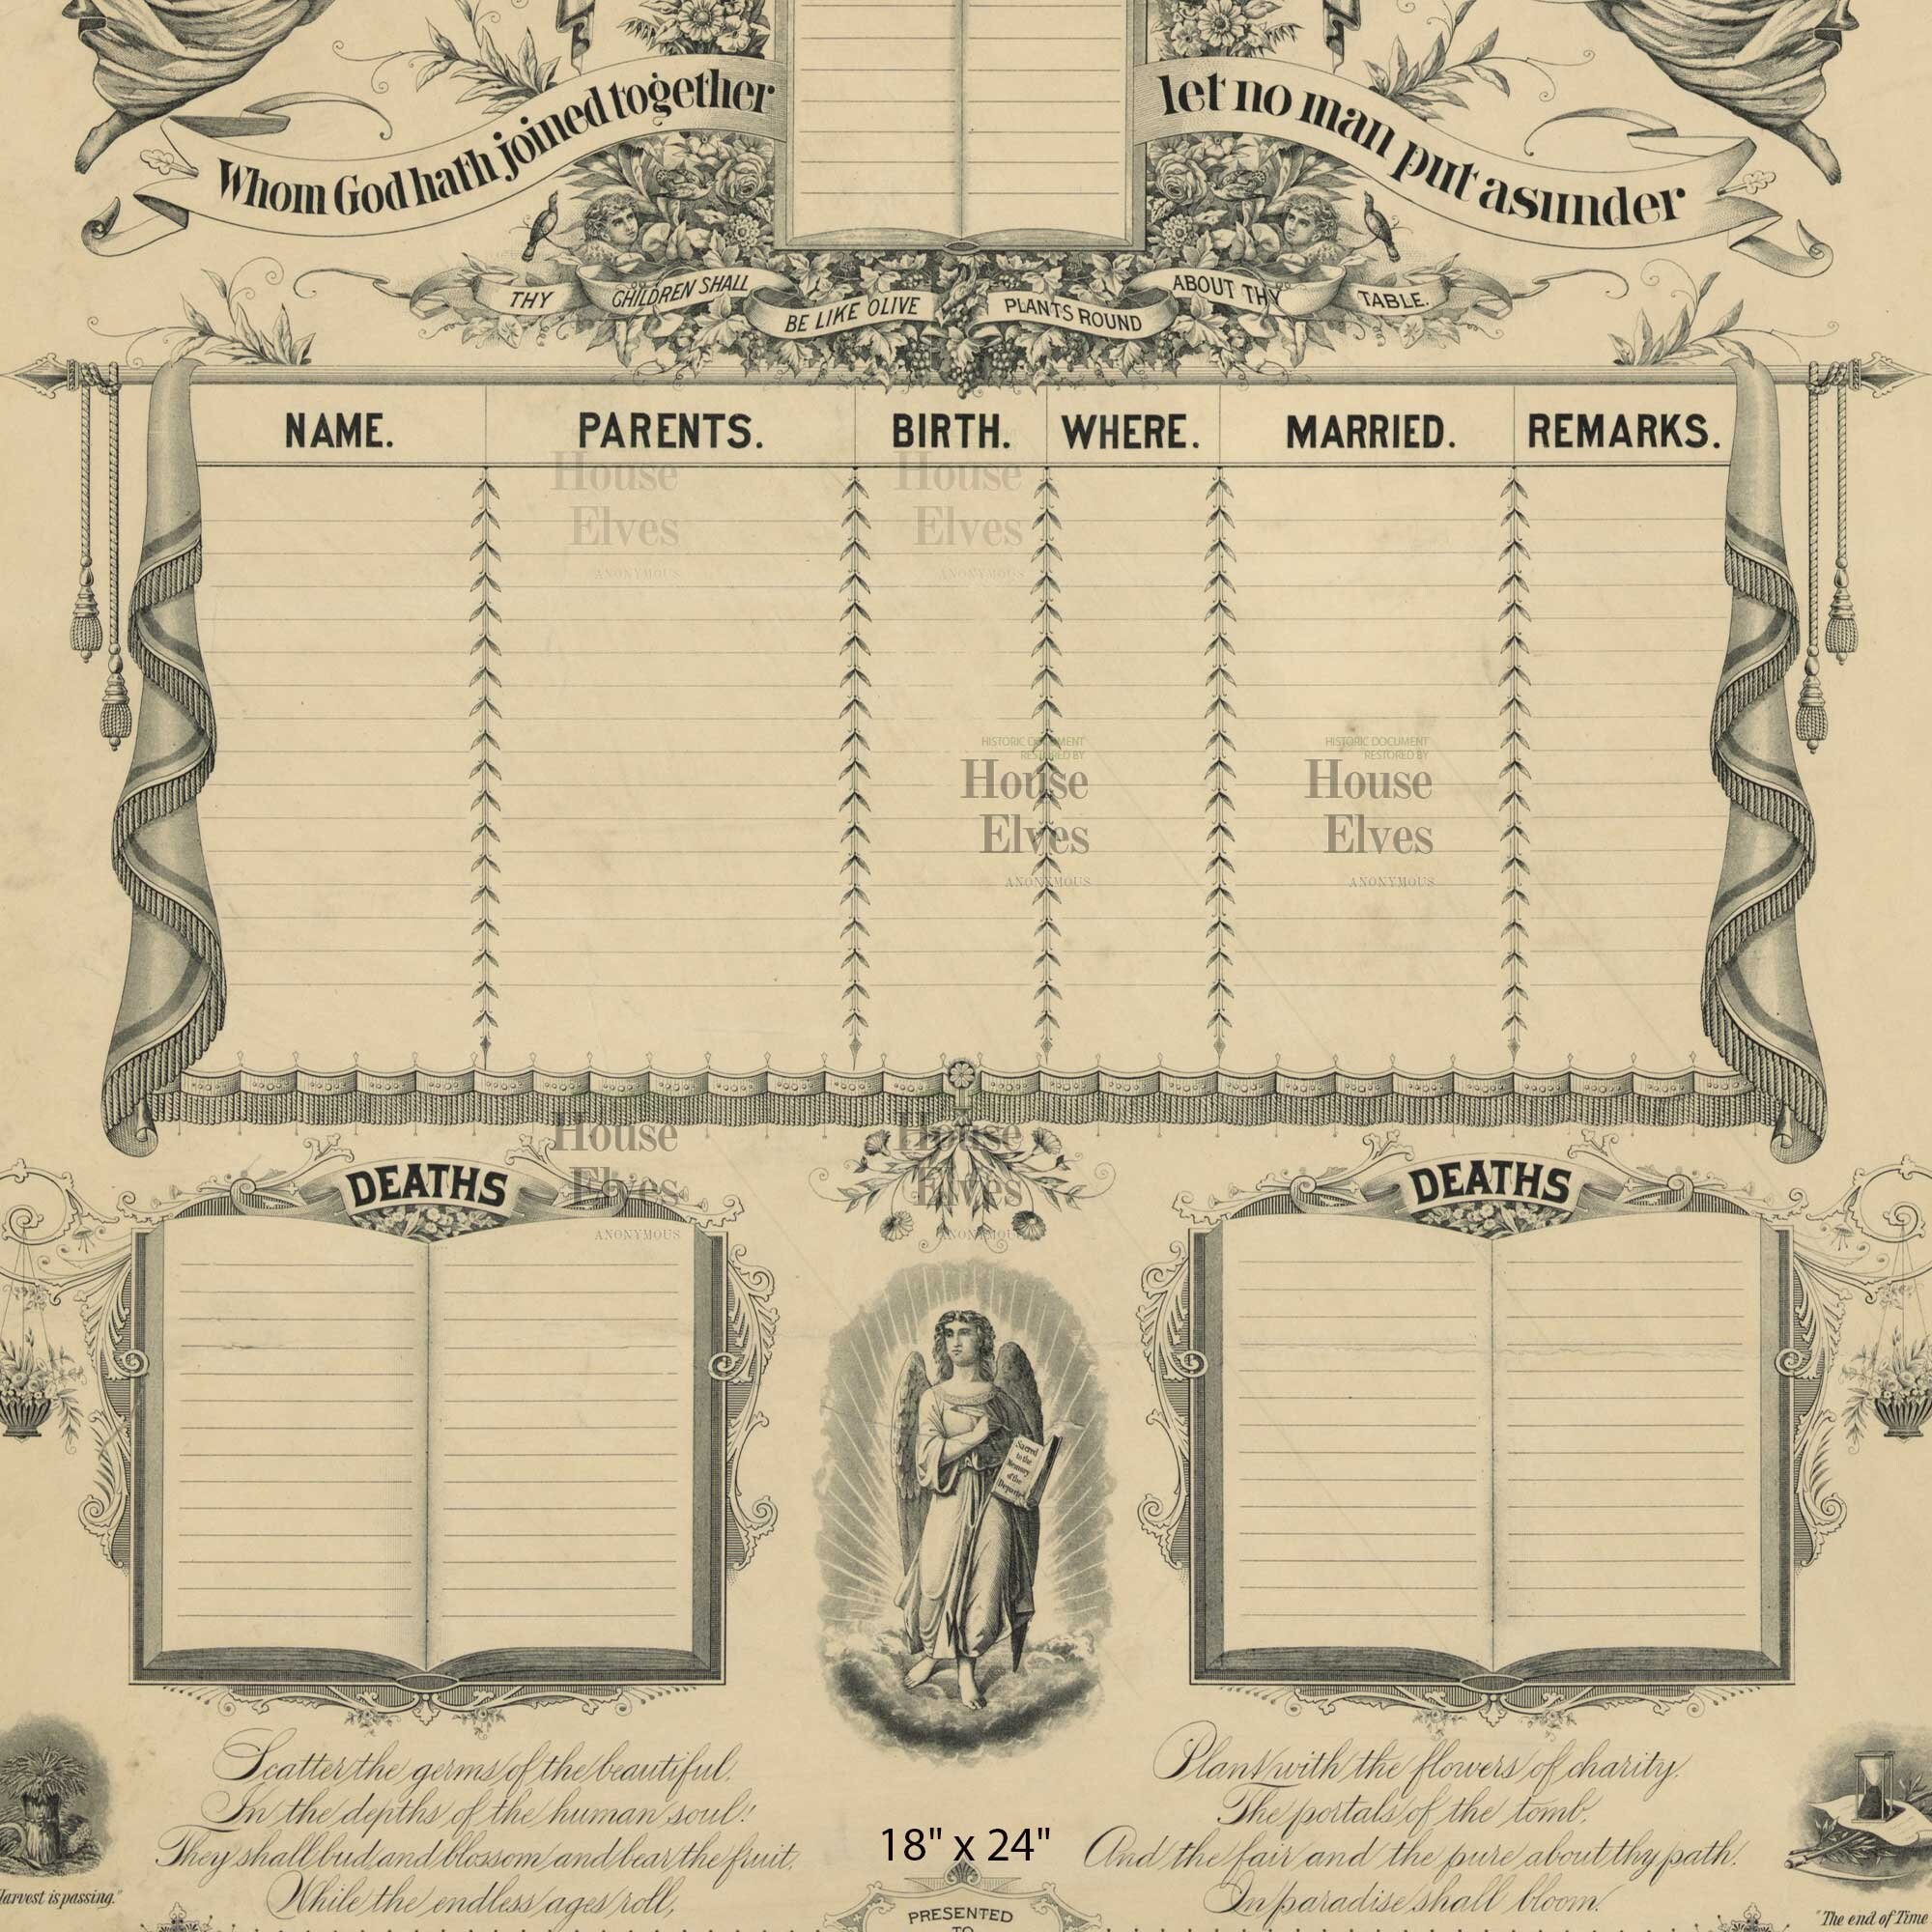 Whom God hath joined together
let no man put asunder
THY CHILDREN SHALL BE LIKE OLIVE PLANTS ROUND ABOUT THY TABLE.
NAME. PARENTS. BIRTH. WHERE. MARRIED. REMARKS.
House House
Elves Elves
ANONYMOUS ANONYMOUS
HISTORIC DOCUMENT HISTORIC DOCUMENT
RESTORED BY RESTORED BY
House House
Elves Elves
ANONYMOUS ANONYMOUS
House House
Elves Elves
ANONYMOUS ANONYMOUS
DEATHS
DEATHS
Sacred
to the
Memory
of the
Departed
Scatter the germs of the beautiful,
In the depths of the human soul!
They shall bud and blossom and bear the fruit,
While the endless ages roll,
Plant with the flowers of charity.
The portals of the tomb,
And the fair and the pure about thy path.
In paradise shall bloom.
18" x 24"
Harvest is passing."
"The end of Time
PRESENTED
TO